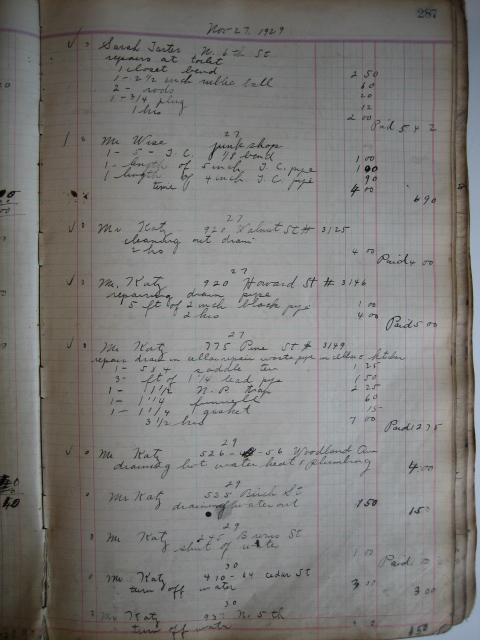 287
Nov 27, 1929
Sarah N. 6th St
repairs at toilet
1 closet bend 2 50
1 - 2 1/2 inch rubber ball 60
2 - rods 20
1 - 3/4 plug 12
1 hrs 2 00
Paid 5 42
27
Mr Wise junk shop
1 - 5 - T. C. 1/8 bend 1 00
1 - length of 5 inch T. C. pipe 1 00
1 length of 4 inch T. C. pipe 90
time 4 00
6 90
27
Mr Katz 920 Walnut St # 3125
cleaning out drain
2 hrs 4 00
Paid 4 00
27
Mr. Katz 920 Howard St # 3146
repairing drain pipe
5 ft of 2 inch black pipe 1 00
2 hrs 4 00
Paid 5 00
27
Mr Katz 775 Pine St # 3149
repair drain in cellar repair waste pipe in cellar & kitchen
1 - 5 x 4 saddle tee 1 25
3 - ft of 1 1/4 lead pipe 1 50
1 - 1 1/2 N. P. trap 2 25
1 - 1 1/4 60
1 - 1 1/4 gasket 15
3 1/2 hrs 7 00
Paid 12 75
29
Mr Katz 526 - 56 Woodland Ave
draining hot water heat & plumbing 4 00
29
Mr Katz 535 Birch St
draining water out 1 50
1 50
29
Mr Katz 245 St
shut of water 1 00
Paid
30
Mr Katz 410 - 64 Cedar St
turn off water 3 00
3 00
30
Mr Katz N. 5th
turn off water
1 50